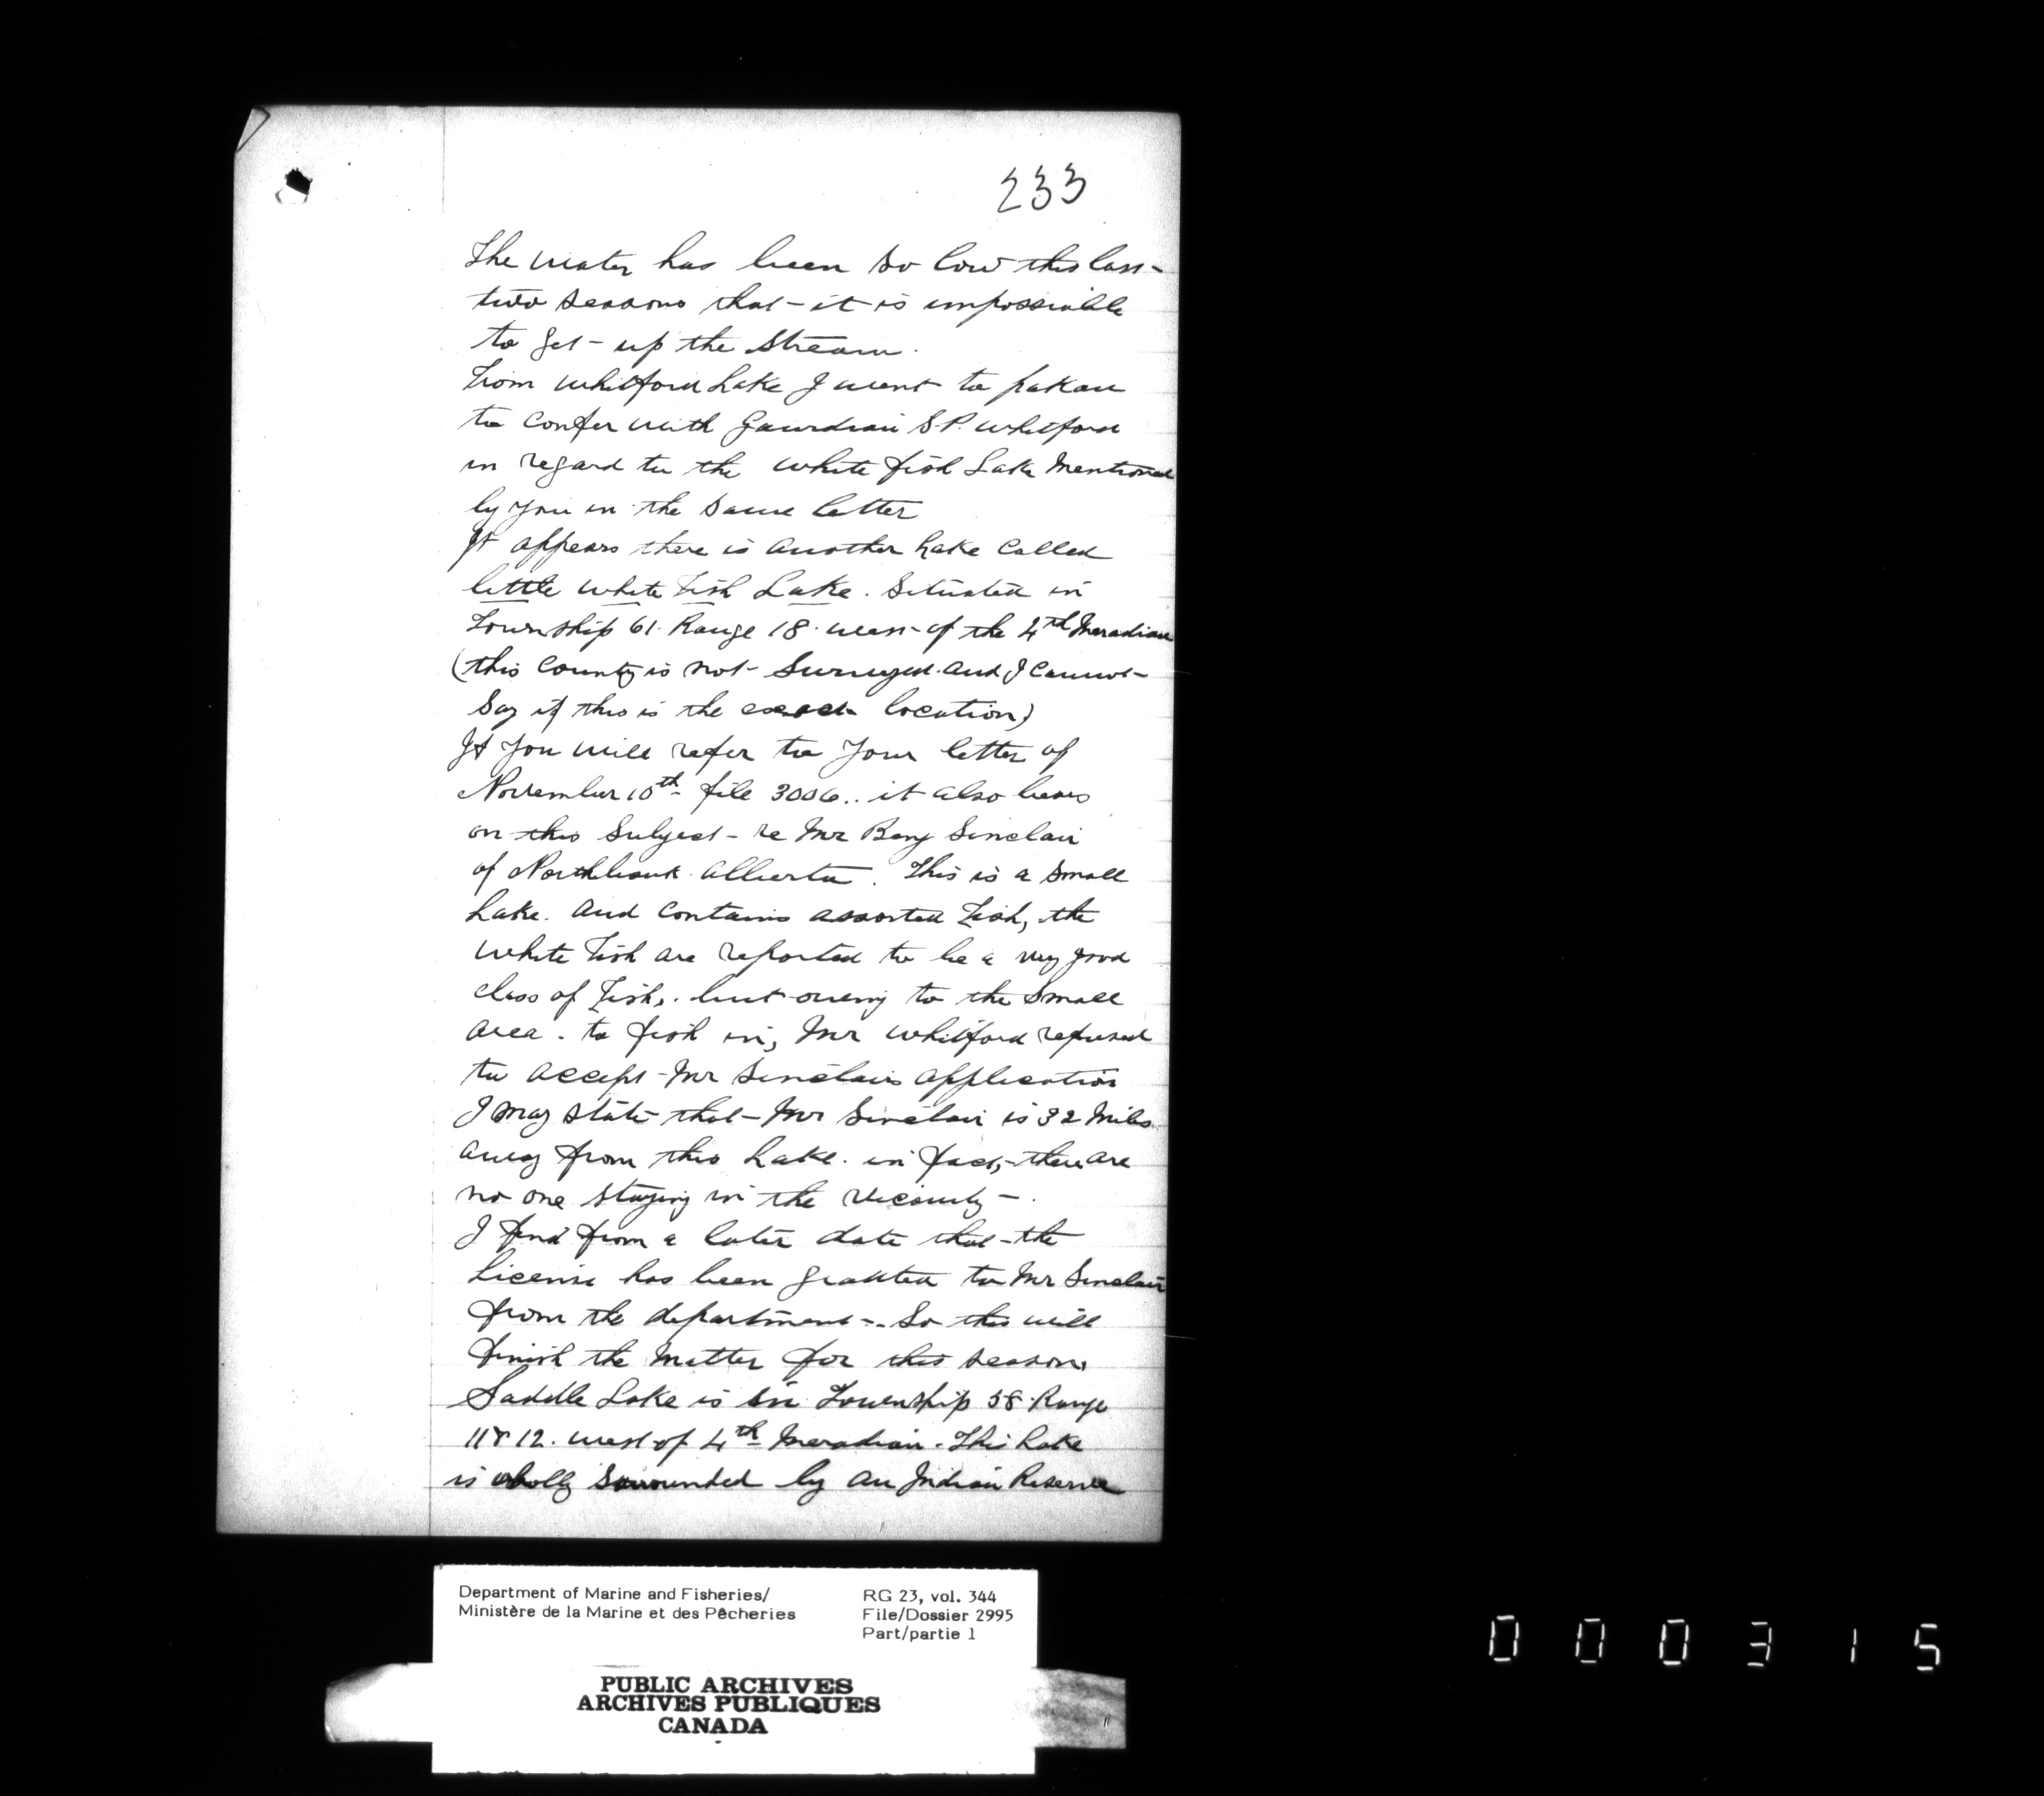 233
The water has been so low this last
two seasons that it is impossiable
to get up the stream.
From Whitford Lake I went to pakan
to confer with Gaurdian S P. Whitford
in regard to the white fish Lake Mentioned
by you in the same letter
It appears there is another Lake called
little white Fish Lake. Situated in
Township 61. Range 18. west of the 4th Meradian
(this county is not Surveyed. and I cannot
Say if this is the exact location)
If you will refer to your letter of
November 10th file 3006.. it also bears
on this Subject - re Mr Benj Sinclair
of Northbank Alberta. This is a small
Lake. and contains assorted Fish, the
white Fish are reported to be a very good
class of Fish,. but owing to the small
area. to fish in, Mr Whitford refused
to accept Mr Sinclairs application
I may state that Mr Sinclair is 32 Miles
away from this Lake. in fact, there are
no one staying in the vicounty.
I find from a later date that the
License has been granted to Mr Sinclair
from the department. So this will
finish the matter for this season.
Saddle Lake is in Township 58. Range
11 & 12. west of 4th Meradian. This Lake
is wholly surrounded by an Indian Reserve
Department of Marine and Fisheries/
Ministère de la Marine et des Pêcheries
RG 23, vol. 344
File/Dossier 2995
Part/partie 1
PUBLIC ARCHIVES
ARCHIVES PUBLIQUES
CANADA
000315